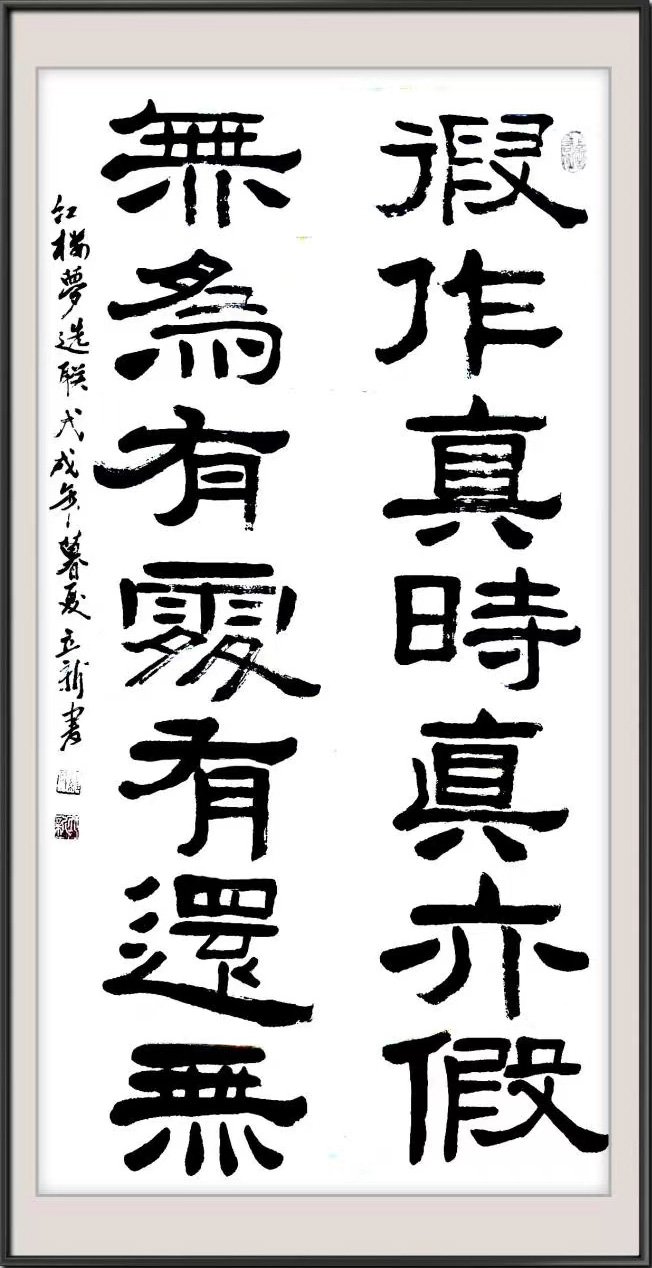 假作真時真亦假
無為有處有還無
红楼夢选联戊戌年暮夏立新書